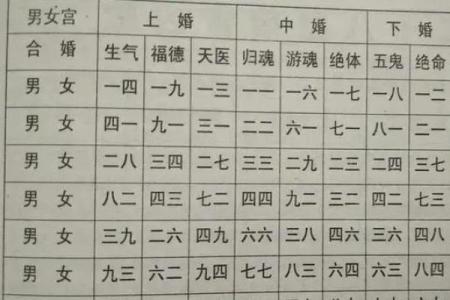 男女宫 上婚 中婚 下婚
合婚 生气 福德 天医 归魂 游魂 绝体 五鬼 绝命
男女 一四 一九 一三 一一 一六 一七 一八 一二
男女 四一 九一 三一 二二 六一 七一 八一 二一
男女 二八 三四 二七 三三 二九 二三 二四 三七
男女 八二 四三 七二 四四 九二 三二 四二 七三
男女 三九 二六 四九 六六 三八 四六 三六 四八
男女 九三 六二 九四 七七 八三 六四 六三 八四